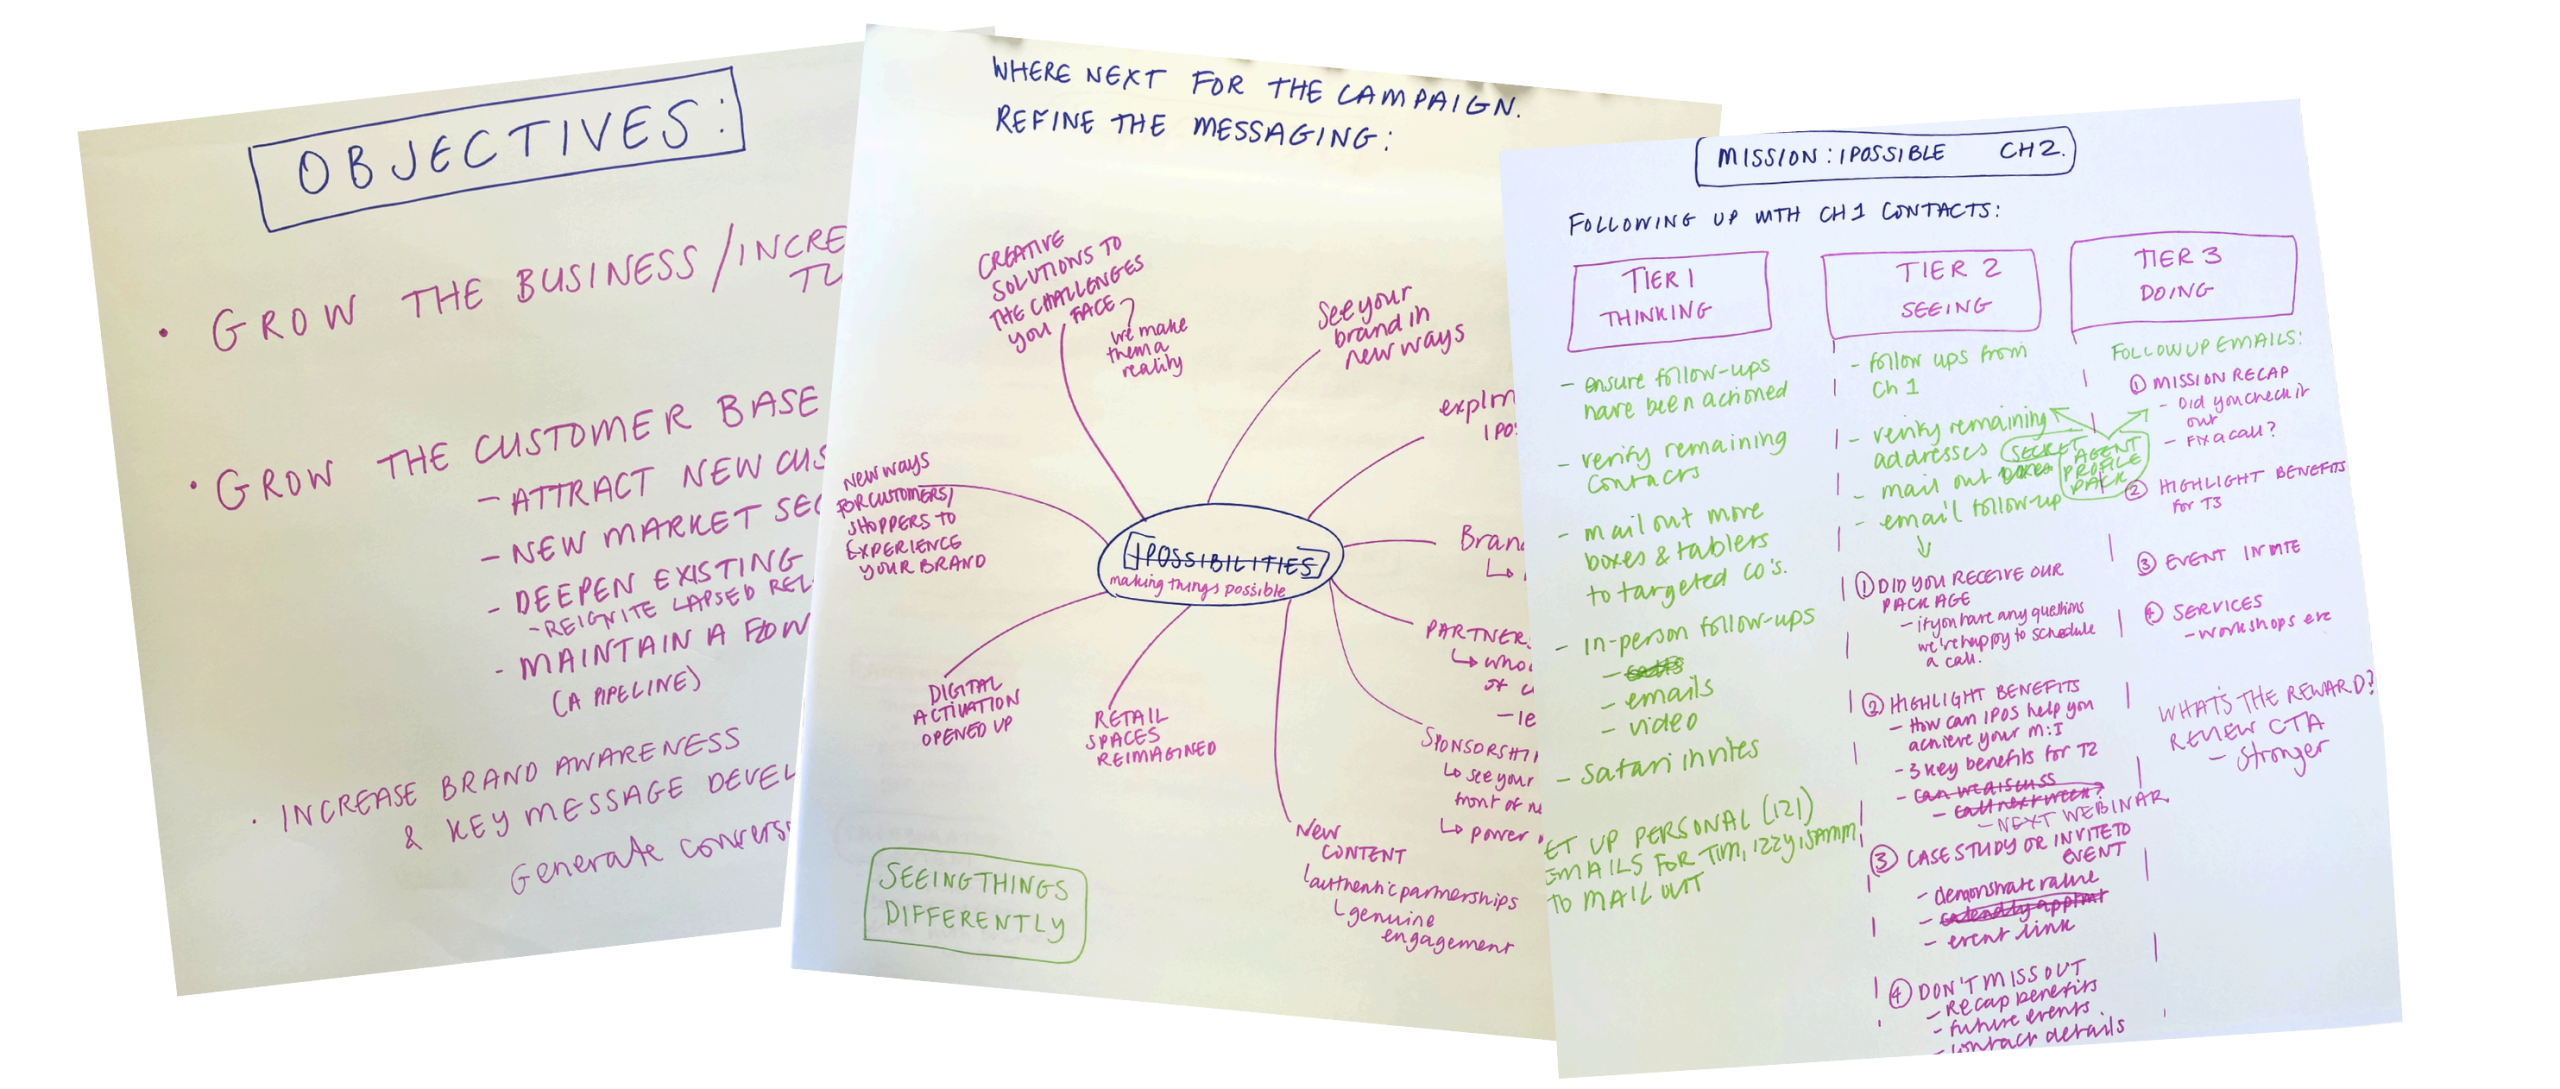 OBJECTIVES:
• GROW THE BUSINESS / INCRE
TU
• GROW THE CUSTOMER BASE
- ATTRACT NEW CUS
- NEW MARKET SEC
- DEEPEN EXISTING
- REIGNITE LAPSED REL
- MAINTAIN A FLOW
(A PIPELINE)
• INCREASE BRAND AWARENESS
& KEY MESSAGE DEVEL
Generate convers
WHERE NEXT FOR THE CAMPAIGN.
REFINE THE MESSAGING:
CREATIVE
SOLUTIONS TO
THE CHALLENGES
YOU FACE
we make
them a
reality
See your
brand in
new ways
IPOS
New ways
FOR CUSTOMERS/
SHOPPERS TO
EXPERIENCE
YOUR BRAND
IPOSSIBILITIES
making things possible
Bran
PARTNER
↳ who
of c
- le
SPONSORSHI
↳ see your
front of n
↳ power
DIGITAL
ACTIVATION
OPENED UP
RETAIL
SPACES
REIMAGINED
New
CONTENT
authentic partnerships
genuine
engagement
SEEING THINGS
DIFFERENTLY
MISSION: IPOSSIBLE CH2.
FOLLOWING UP WITH CH1 CONTACTS:
TIER 1
THINKING
- ensure follow-ups
have been actioned
- verify remaining
contacts
- mail out more
boxes & tablers
to targeted co's.
- in-person follow-ups
- emails
- video
- Safari invites
ET UP PERSONAL (121)
EMAILS FOR TIM, IZZY,
TO MAIL OUT
TIER 2
SEEING
- follow ups from
Ch 1
- verify remaining
addresses
- mail out boxes
SECRET
AGENT
PROFILE
PACK
- email follow-up
↓
① DID YOU RECEIVE OUR
PACKAGE
- if you have any questions
we're happy to schedule
a call.
② HIGHLIGHT BENEFITS
- How can IPOS help you
achieve your M:I
- 3 key benefits for T2
- can we discuss
- call next week?
- NEXT WEBINAR
③ CASE STUDY OR INVITE TO
EVENT
- demonstrate value
- calendly apptmt
- event link
④ DON'T MISS OUT
- Recap benefits
- future events
- contact details
TIER 3
DOING
FOLLOW UP EMAILS:
① MISSION RECAP
- Did you check it
out
- Fix a call?
② HIGHLIGHT BENEFITS
for T3
③ EVENT INVITE
④ SERVICES
- workshops etc
WHAT'S THE REWARD?
REVIEW CTA
- Stronger